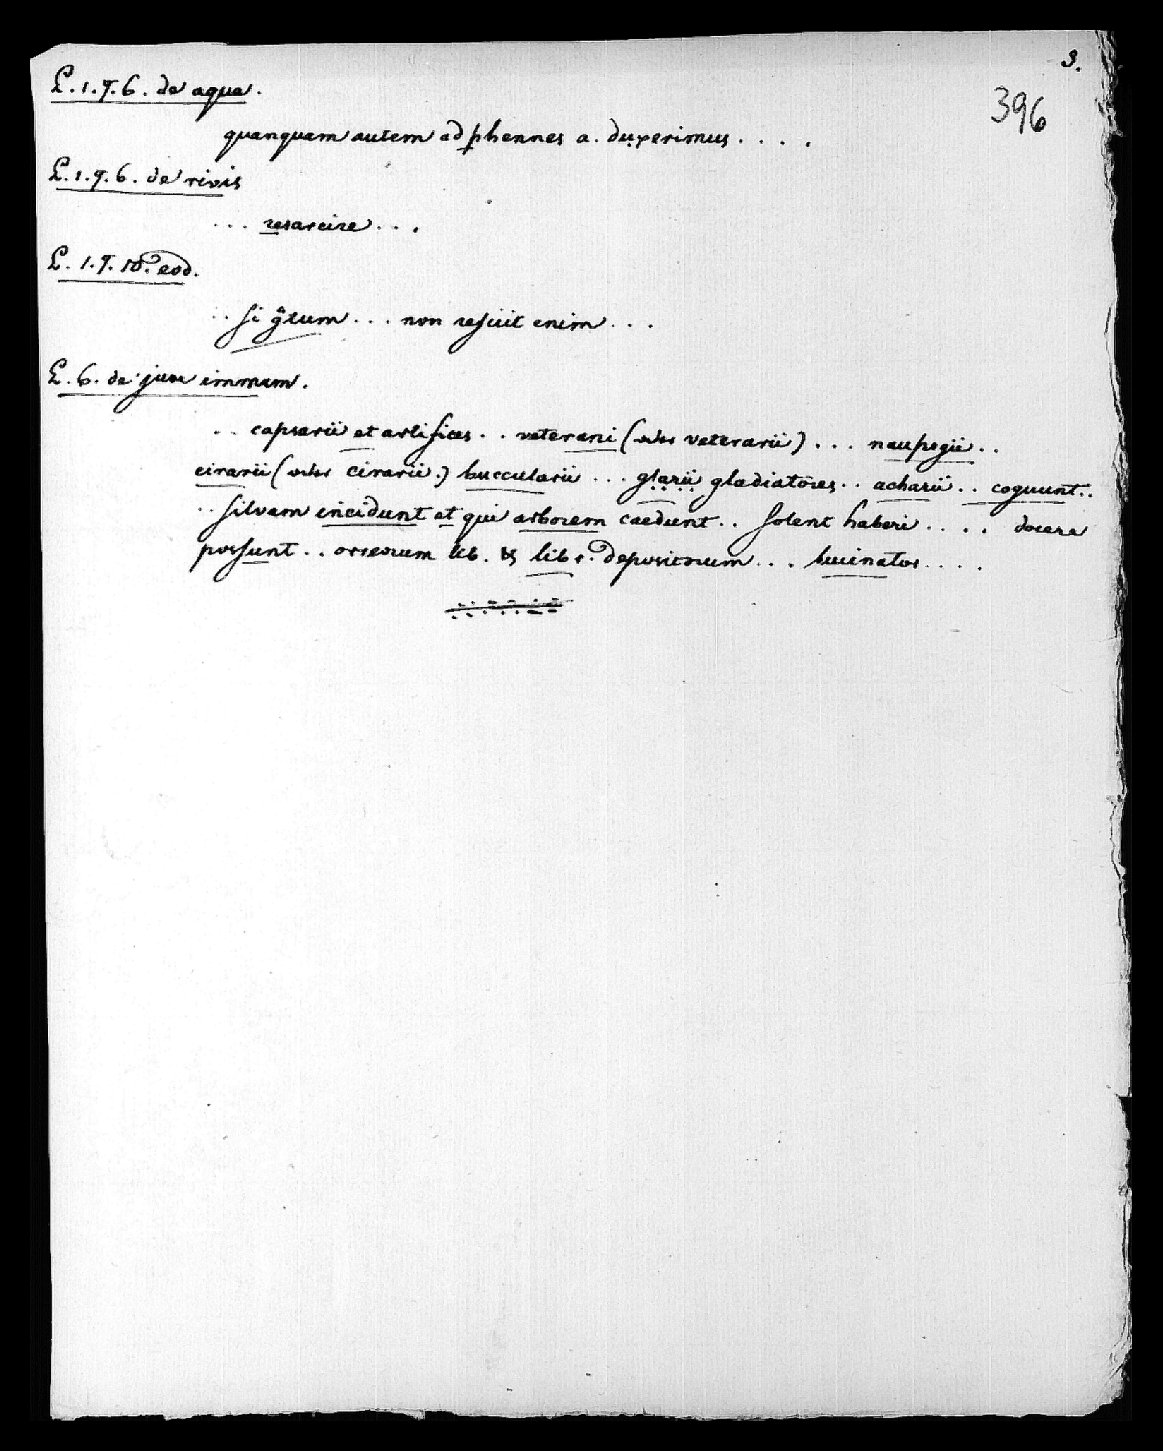 3.
396
L. 1. §. 6. de aqua.
quanquam autem ad phennes a. duxerimus . . . .
L. 1. §. 6. de rivis
. . . resarcire . . .
L. 1. §. 10. eod.
. . si g̃tum . . . non refuit enim . . .
L. 6. de jure immun.
. . capsarii et artifices . . veterani ( veterarii) . . . naupegii . .
cirarii ( cirarii.) buccularii . . . glarii gladiatores . . acharii . . coquunt . .
. . silvam incidunt et qui arborem caedunt . . solent haberi . . . . docere
possunt . . orreorum lib. & libr. depositorum . . . bucinator . . . .